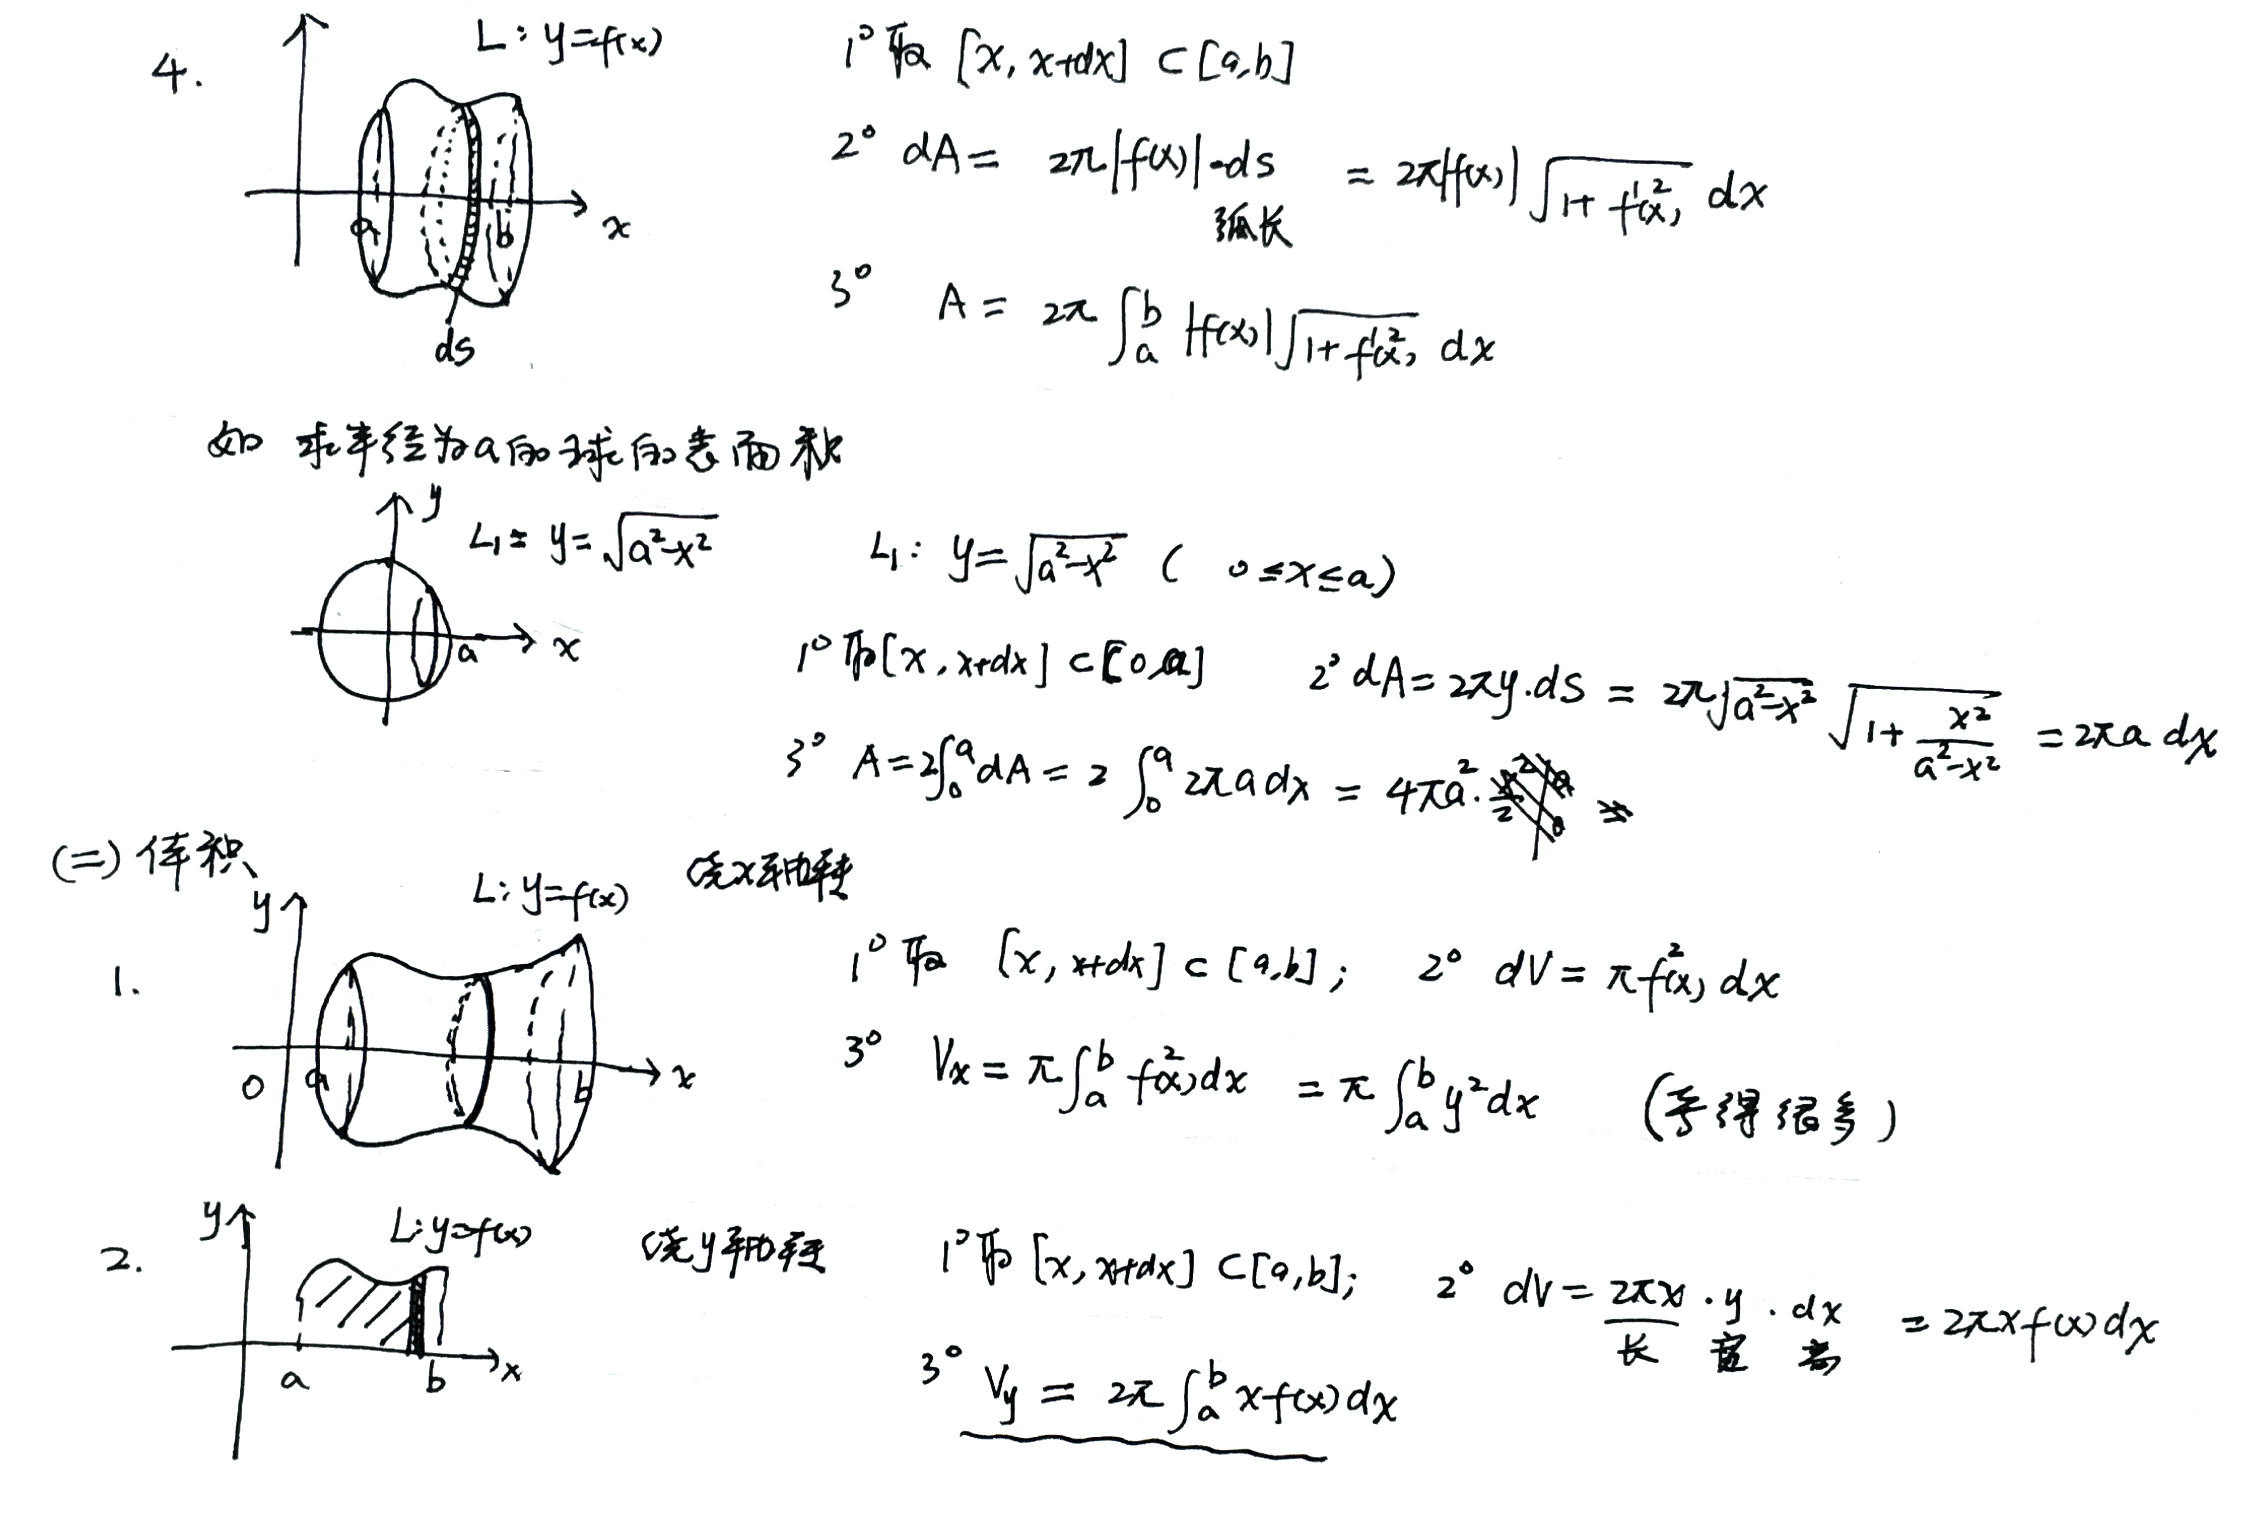 4. L: y=f(x) 1° 取 [x, x+dx] ⊂ [a,b]
2° dA = 2π|f(x)|·ds = 2π|f(x)|√(1+f'²(x)) dx
弧长
a b x
3° A = 2π∫ₐᵇ |f(x)|√(1+f'²(x)) dx
ds
如 求半径为a的球的表面积
y L₁: y=√(a²-x²) L₁: y=√(a²-x²) ( 0≤x≤a)
a x 1° 取[x, x+dx] ⊂ [0,a] 2° dA=2πy·ds = 2π√(a²-x²) √(1+x²/(a²-x²)) = 2πa dx
3° A=2∫₀ᵃdA = 2∫₀ᵃ2πa dx = 4πa².
(二) 体积
y L: y=f(x) 绕x轴转
1. 1° 取 [x, x+dx] ⊂ [a,b]; 2° dV = πf²(x) dx
0 a b x 3° Vx = π∫ₐᵇ f²(x)dx = π∫ₐᵇ y²dx (考得很多)
2. y L: y=f(x) 绕y轴转 1° 取 [x, x+dx] ⊂ [a,b]; 2° dV = 2πx · y · dx = 2πx f(x) dx
长 宽 高
a b x
3° Vy = 2π∫ₐᵇ x f(x) dx